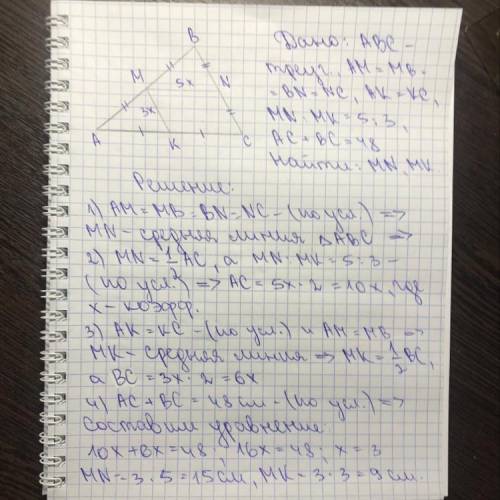 B
Дано: ABC -
M
5x
N
треуг., AM = MB =
= BN = NC, AK = KC,
3x
MN : MK = 5 : 3,
A
K
C
AC + BC = 48
Найти: MN, MK
Решение:
1) AM = MB = BN = NC - (по усл.) =>
MN - средная линия △ABC =>
2) MN = 1/2 AC, а MN : MK = 5 : 3 -
(по усл.) => AC = 5x · 2 = 10x, где
x - коэфф.
3) AK = KC - (по усл.) и AM = MB =>
MK - средная линия => MK = 1/2 BC,
а BC = 3x · 2 = 6x
4) AC + BC = 48 см - (по усл.) =>
Составим уравнение:
10x + 6x = 48; 16x = 48; x = 3
MN = 3 · 5 = 15 см, MK = 3 · 3 = 9 см.